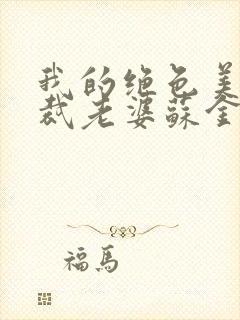 我的绝色美
裁老婆蘇全
福馬